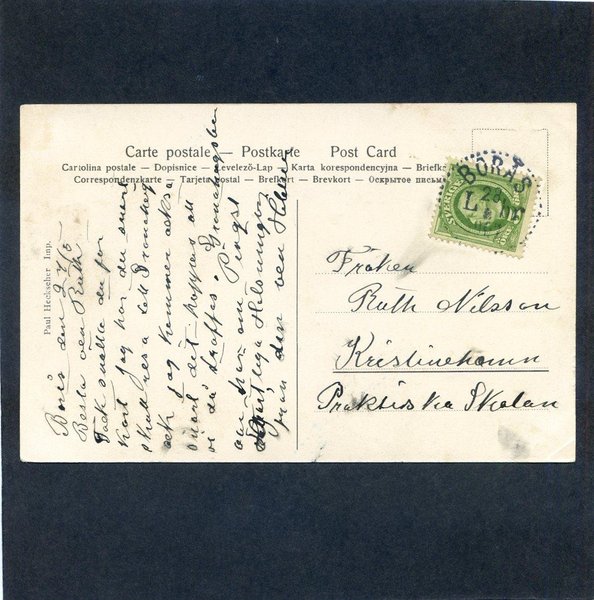 Carte postale — Postkarte Post Card
Cartolina postale — Dopisnice — Levelező-Lap — Karta korespondencyjna — Briefka
Correspondenzkarte — Tarjeta postal — Brefkort — Brevkort — Открытое письмо
Paul Heckscher Imp.
BORÅS
Borås den 27/5
Bästa vän Ruth
Tack snälla du för
kort jag har du snart
skall resa till
och jag kommer också
snart det hoppas att
vi då träffas.
om Pingst
liga Hälsningar
från din vän
Fröken
Ruth Nilsson
Kristinehamn
Praktiska Skolan